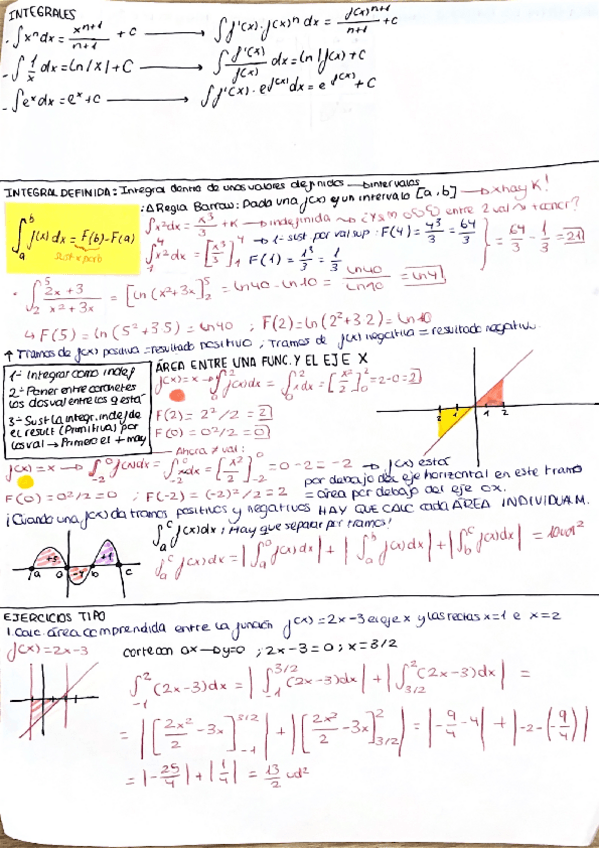 INTEGRALES
- ∫xⁿdx = xⁿ⁺¹/n+1 + C → ∫f'(x)·f(x)ⁿ dx = f(x)ⁿ⁺¹/n+1 + C
- ∫1/x dx = ln|x| + C → ∫f'(x)/f(x) dx = ln|f(x)| + C
- ∫eˣdx = eˣ + C → ∫f'(x)·e^f(x) dx = e^f(x) + C
INTEGRAL DEFINIDA: Integral dentro de unos valores definidos → intervalos
∫ₐᵇ f(x)dx = F(b)-F(a)
sust x por b
Regla Barrow: Dada una f(x) y un intervalo [a,b] → x hay K!
∫x²dx = x³/3 + K → indefinida entre 2 val
∫₁⁴x²dx = [x³/3]₁⁴ → 1- sust por val sup: F(4) = 4³/3 = 64/3
F(1) = 1³/3 = 1/3
= 64/3 - 1/3 = 21
· ∫₂⁵ 2x+3/x²+3x = [ln(x²+3x]₂⁵ = ln40 - ln10 = ln40/ln10 = ln4
↳ F(5) = ln(5²+3·5) = ln40 ; F(2) = ln(2²+3·2) = ln10
↑ Tramos de f(x) positiva = resultado positivo ; Tramos de f(x) negativa = resultado negativo.
1- Integrar como indef
2- Poner entre corchetes
los dos val entre los q está
3- Sust la integr. indef de
el result (Primitiva) por
los val → Primero el + may
ÁREA ENTRE UNA FUNC. Y EL EJE X
f(x)=x → ∫₀² f(x)dx = ∫₀² x dx = [x²/2]₀² = 2-0 = 2
F(2) = 2²/2 = 2
F(0) = 0²/2 = 0
Ahora ≠ val:
f(x) = x → ∫₋₂⁰ f(x)dx = ∫₋₂⁰ xdx = [x²/2]₋₂⁰ = 0-2 = -2 → f(x) está
por debajo del eje horizontal en este tramo
F(0) = 0²/2 = 0 ; F(-2) = (-2)²/2 = 2 = área por debajo del eje OX.
¡Cuando una f(x) da tramos positivos y negativos HAY QUE CALC cada ÁREA INDIVIDUAM.
∫ₐᶜ f(x)dx ; Hay que separar por tramos!
∫ₐᶜ f(x)dx = |∫ₐ⁰ f(x)dx| + |∫ₐᵇ f(x)dx| + |∫ᵇᶜ f(x)dx| = 10ud²
a 0 b c
EJERCICIOS TIPO
1. Calc. área comprendida entre la función f(x) = 2x-3 el eje x y las rectas x=1 e x=2
f(x) = 2x-3 corte con OX → y=0 ; 2x-3=0 ; x=3/2
∫₋₁² (2x-3)dx = |∫₋₁^3/2 (2x-3)dx| + |∫₃/₂² (2x-3)dx| =
= |[2x²/2 - 3x]₋₁^3/2| + |[2x²/2 - 3x]₃/₂²| = |-9/4 - 4| + |-2-(-9/4)|
= |-25/4| + |1/4| = 13/2 ud²